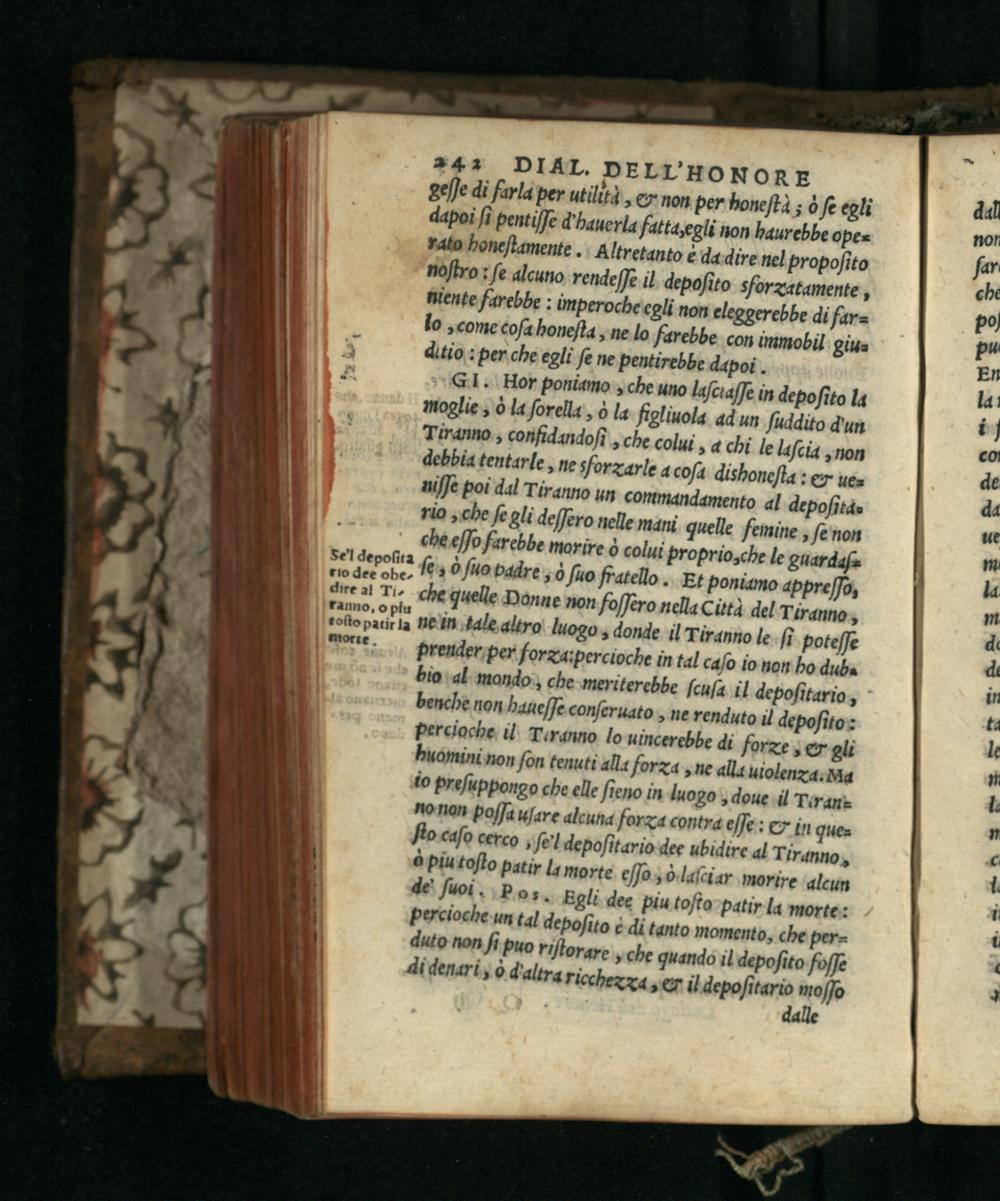 242 DIAL. DELL'HONORE
geſſe di farla per utilità, & non per honeſtà; ò ſe egli
dapoi ſi pentiſſe d'hauerla fatta, egli non haurebbe ope=
rato honeſtamente. Altretanto è da dire nel propoſito
noſtro: ſe alcuno rendeſſe il depoſito sforzatamente,
niente farebbe: imperoche egli non eleggerebbe di far=
lo, come coſa honeſta, ne lo farebbe con immobil giu=
ditio: per che egli ſe ne pentirebbe dapoi.
GI. Hor poniamo, che uno laſciaſſe in depoſito la
moglie, ò la ſorella, ò la figliuola ad un ſuddito d'un
Tiranno, confidandoſi, che colui, a chi le laſcia, non
debbia tentarle, ne sforzarle a coſa dishoneſta: & ue=
niſſe poi dal Tiranno un commandamento al depoſita=
rio, che ſe gli deſſero nelle mani quelle femine, ſe non
che eſſo farebbe morire ò colui proprio, che le guardaſ=
ſe, ò ſuo padre, ò ſuo fratello. Et poniamo appreſſo,
che quelle Donne non foſſero nella Città del Tiranno,
ne in tale altro luogo, donde il Tiranno le ſi poteſſe
prender per forza: percioche in tal caſo io non ho dub=
bio al mondo, che meriterebbe ſcuſa il depoſitario,
benche non haueſſe conſeruato, ne renduto il depoſito:
percioche il Tiranno lo uincerebbe di forze, & gli
huomini non ſon tenuti alla forza, ne alla uiolenza. Ma
io preſuppongo che elle ſieno in luogo, doue il Tiran=
no non poſſa uſare alcuna forza contra eſſe: & in que=
ſto caſo cerco, ſe'l depoſitario dee ubidire al Tiranno,
ò piu toſto patir la morte eſſo, ò laſciar morire alcun
de' ſuoi. Pos. Egli dee piu toſto patir la morte:
percioche un tal depoſito è di tanto momento, che per=
duto non ſi puo riſtorare, che quando il depoſito foſſe
di denari, ò d'altra ricchezza, & il depoſitario moſſo
dalle
Se'l depoſita
rio dee obe-
dire al Ti-
ranno, o piu
toſto patir la
morte.
dall
non
ſar
che
poſ
pu
En
la
i
co
de
da
ue
m
la
m
do
de
in
ta
le